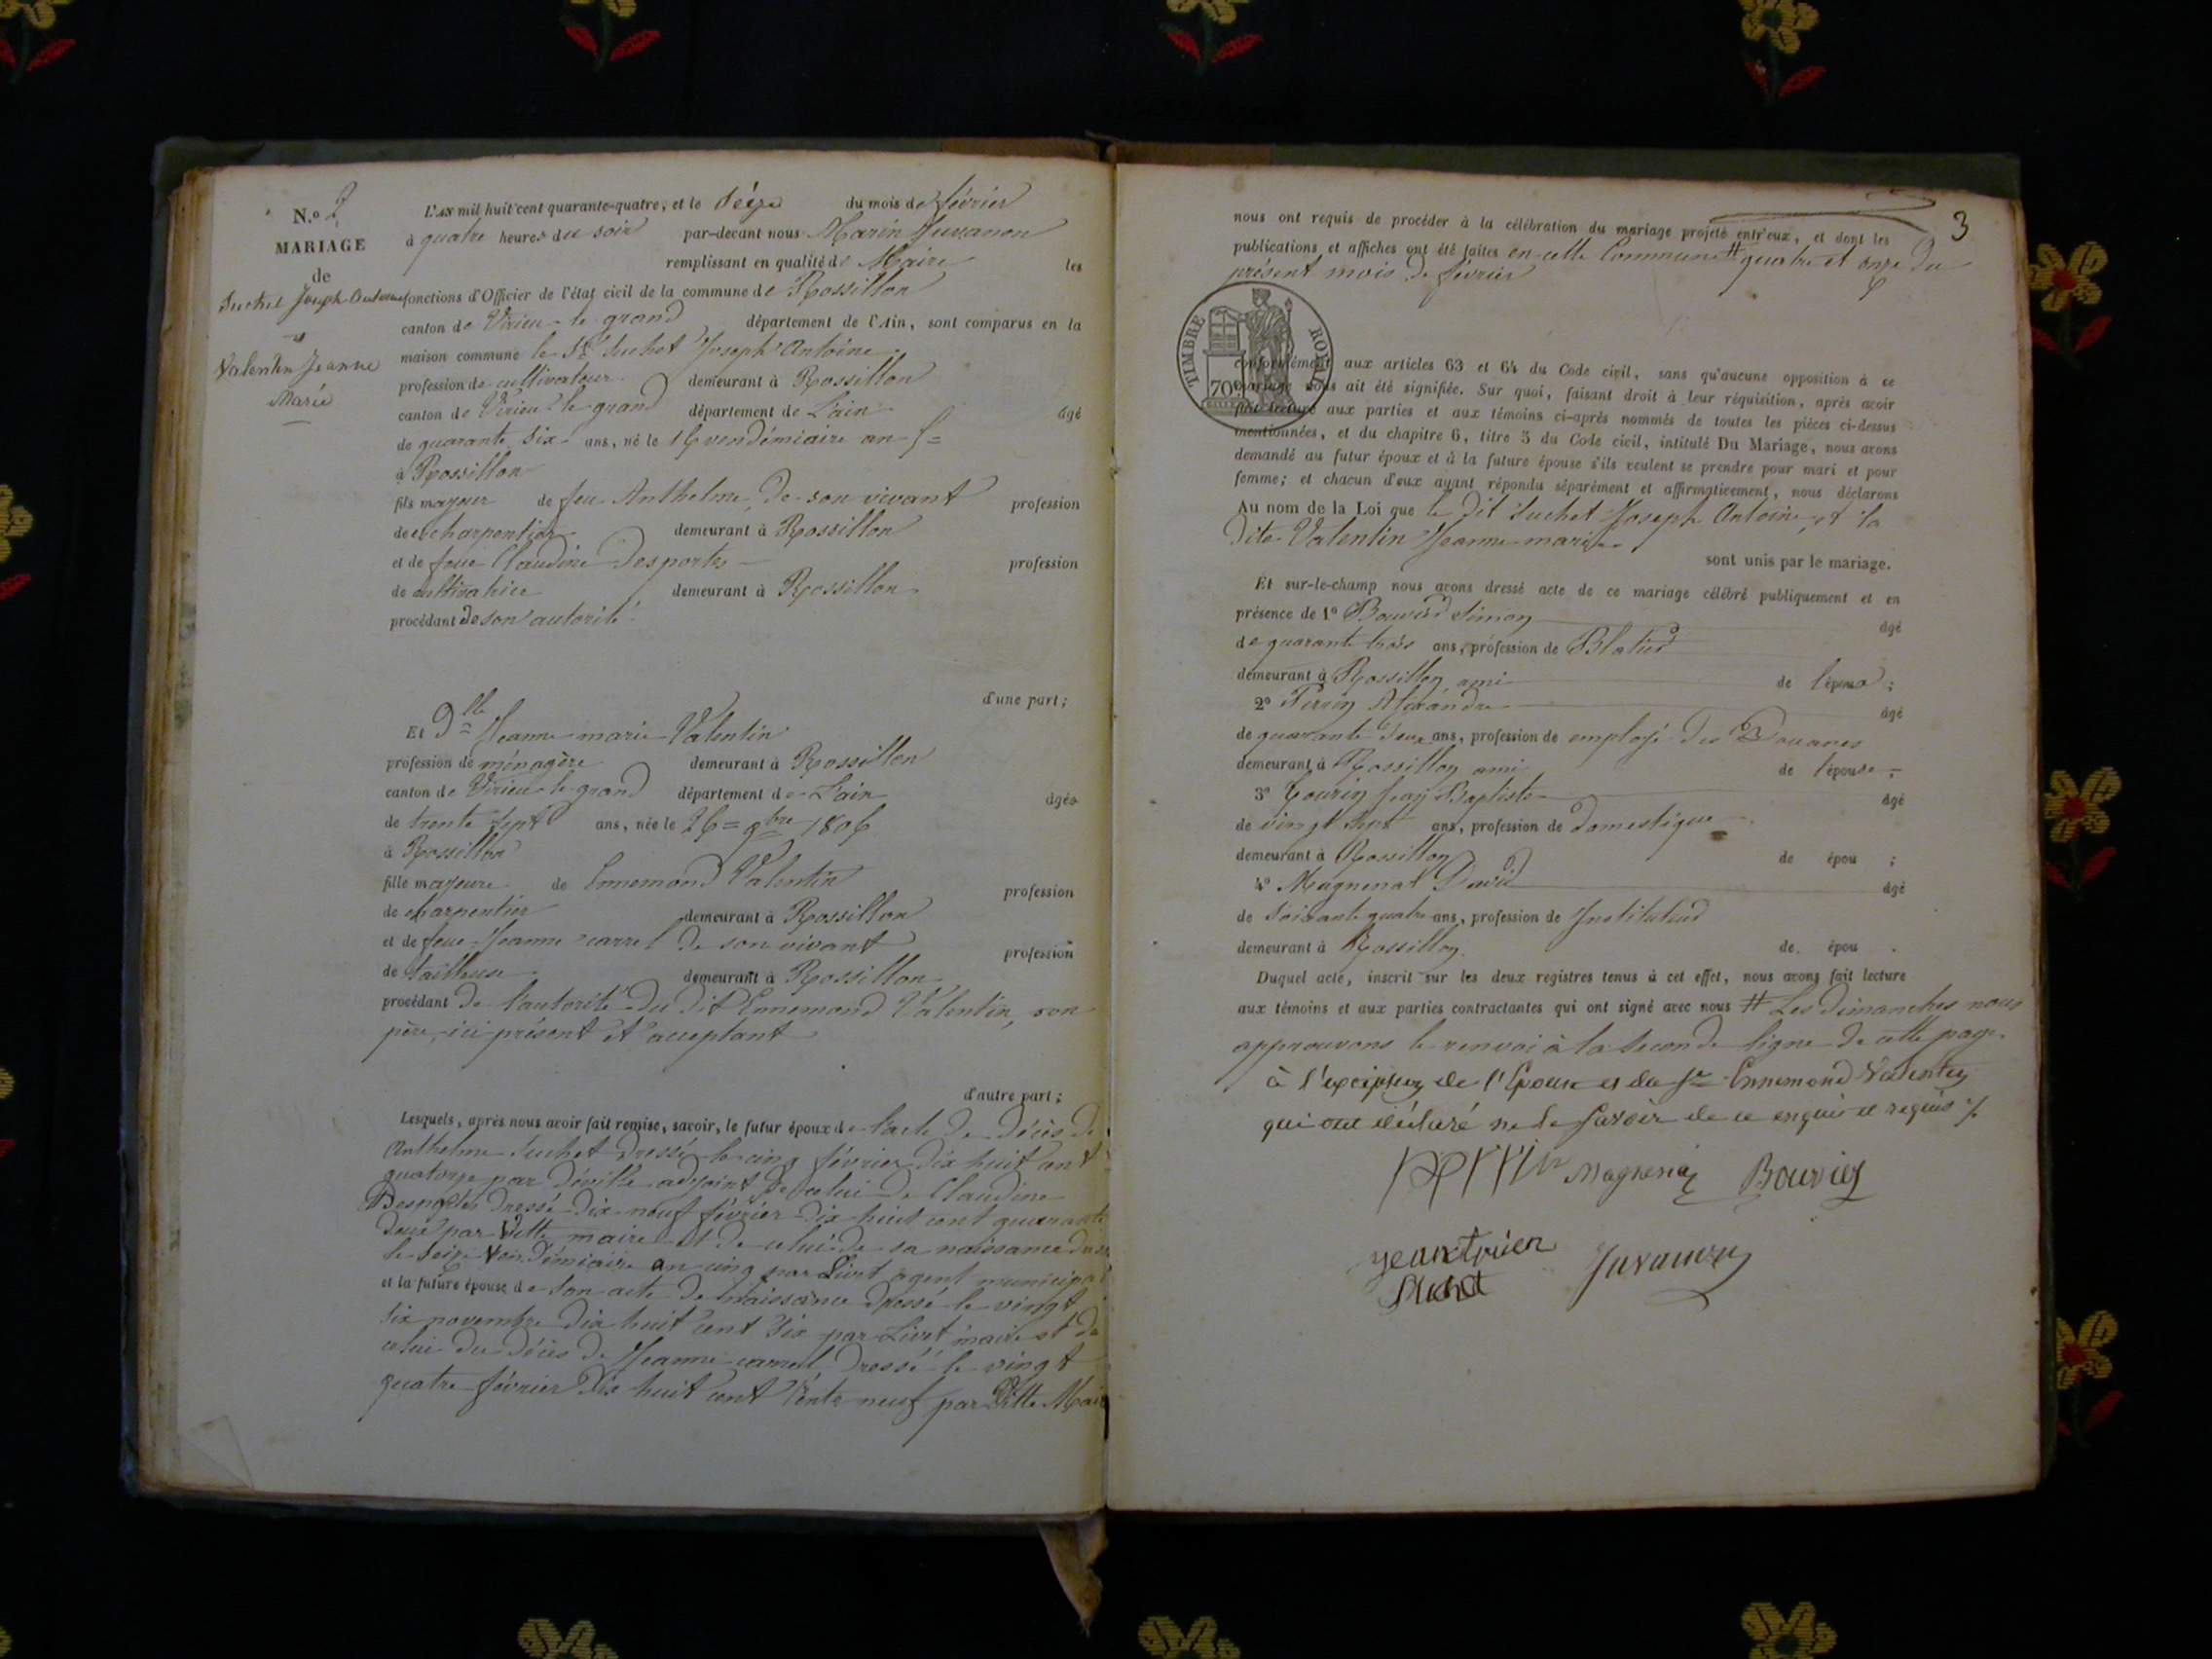 N.º 2
MARIAGE
de
Suchet Joseph Antoine
et
Valentin Jeanne
Marie
L'AN mil huit cent quarante-quatre, et le Seize du mois de février
à quatre heures du soir par-devant nous Marin Juvanon
remplissant en qualité de Maire les
fonctions d'Officier de l'état civil de la commune de Rossillon
canton de Virieu-le grand département de l'Ain, sont comparus en la
maison commune le Sr. Suchet Joseph Antoine
profession de cultivateur demeurant à Rossillon
canton de Virieu-le grand département de L'ain âgé
de quarante six ans, né le 16 vendémiaire an 5=
à Rossillon
fils majeur de feu Anthelme, de son vivant profession
de charpentier demeurant à Rossillon
et de feue Claudine Desportes profession
de demeurant à Rossillon
procédant de son autorité
d'une part;
Et Dlle Jeanne marie Valentin
profession de ménagère demeurant à Rossillon
canton de Virieu-le grand département de L'ain âgée
de trente sept ans, née le 26= 9bre 1806
à Rossillon
fille majeure de Ennemond Valentin profession
de charpentier demeurant à Rossillon
et de feue Jeanne carrel de son vivant profession
de tailleuse demeurant à Rossillon
procédant de l'autorité du dit Ennemond Valentin, son
père, ici présent et acceptant
d'autre part;
Lesquels, après nous avoir fait remise, savoir, le futur époux de l'acte de décès de
Anthelme Suchet dressé le cinq février dix huit cent
quatorze par adjoint de celui de Claudine
Desportes dressé dix neuf février dix huit cent quarante
deux par Vette maire et de celui de sa naissance
le seize Vendémiaire an cinq par Livet agent municipal
et la future épouse de son acte de naissance dressé le vingt
six novembre dix huit cent six par Livet maire et de
celui du décès de Jeanne carrel dressé le vingt
quatre février dix huit cent trente neuf par Vette Maire
3
nous ont requis de procéder à la célébration du mariage projeté entr'eux, et dont les
publications et affiches ont été faites en cette Commune # quatre et onze du
présent mois de février
TIMBRE ROYAL
70
conformément aux articles 63 et 64 du Code civil, sans qu'aucune opposition à ce
mariage nous ait été signifiée. Sur quoi, faisant droit à leur réquisition, après avoir
fait lecture aux parties et aux témoins ci-après nommés de toutes les pièces ci-dessus
mentionnées, et du chapitre 6, titre 5 du Code civil, intitulé Du Mariage, nous avons
demandé au futur époux et à la future épouse s'ils veulent se prendre pour mari et pour
femme; et chacun d'eux ayant répondu séparément et affirmativement, nous déclarons
Au nom de la Loi que le dit Suchet Joseph Antoine, et la
dite Valentin Jeanne marie
sont unis par le mariage.
Et sur-le-champ nous avons dressé acte de ce mariage célébré publiquement et en
présence de 1º Bouvier Simon âgé
de quarante trois ans, profession de Blatier
demeurant à Rossillon ami de l'époux;
2º Perrin Alexandre âgé
de quarante deux ans, profession de employé des Douanes
demeurant à Rossillon ami de l'épouse;
3º Jean Baptiste âgé
de vingt sept ans, profession de domestique
demeurant à Rossillon de épou ;
4º Magnenat David âgé
de soixante quatre ans, profession de Instituteur
demeurant à Rossillon de épou .
Duquel acte, inscrit sur les deux registres tenus à cet effet, nous avons fait lecture
aux témoins et aux parties contractantes qui ont signé avec nous # Les dimanches nous
approuvons le renvoi à la seconde ligne de cette page.
à l'exception de l'Epouse et du Sr Ennemond Valentin
qui ont déclaré ne le savoir de ce enquis et requis
perrin Magnenat Bouvier
Suchet Juvanon